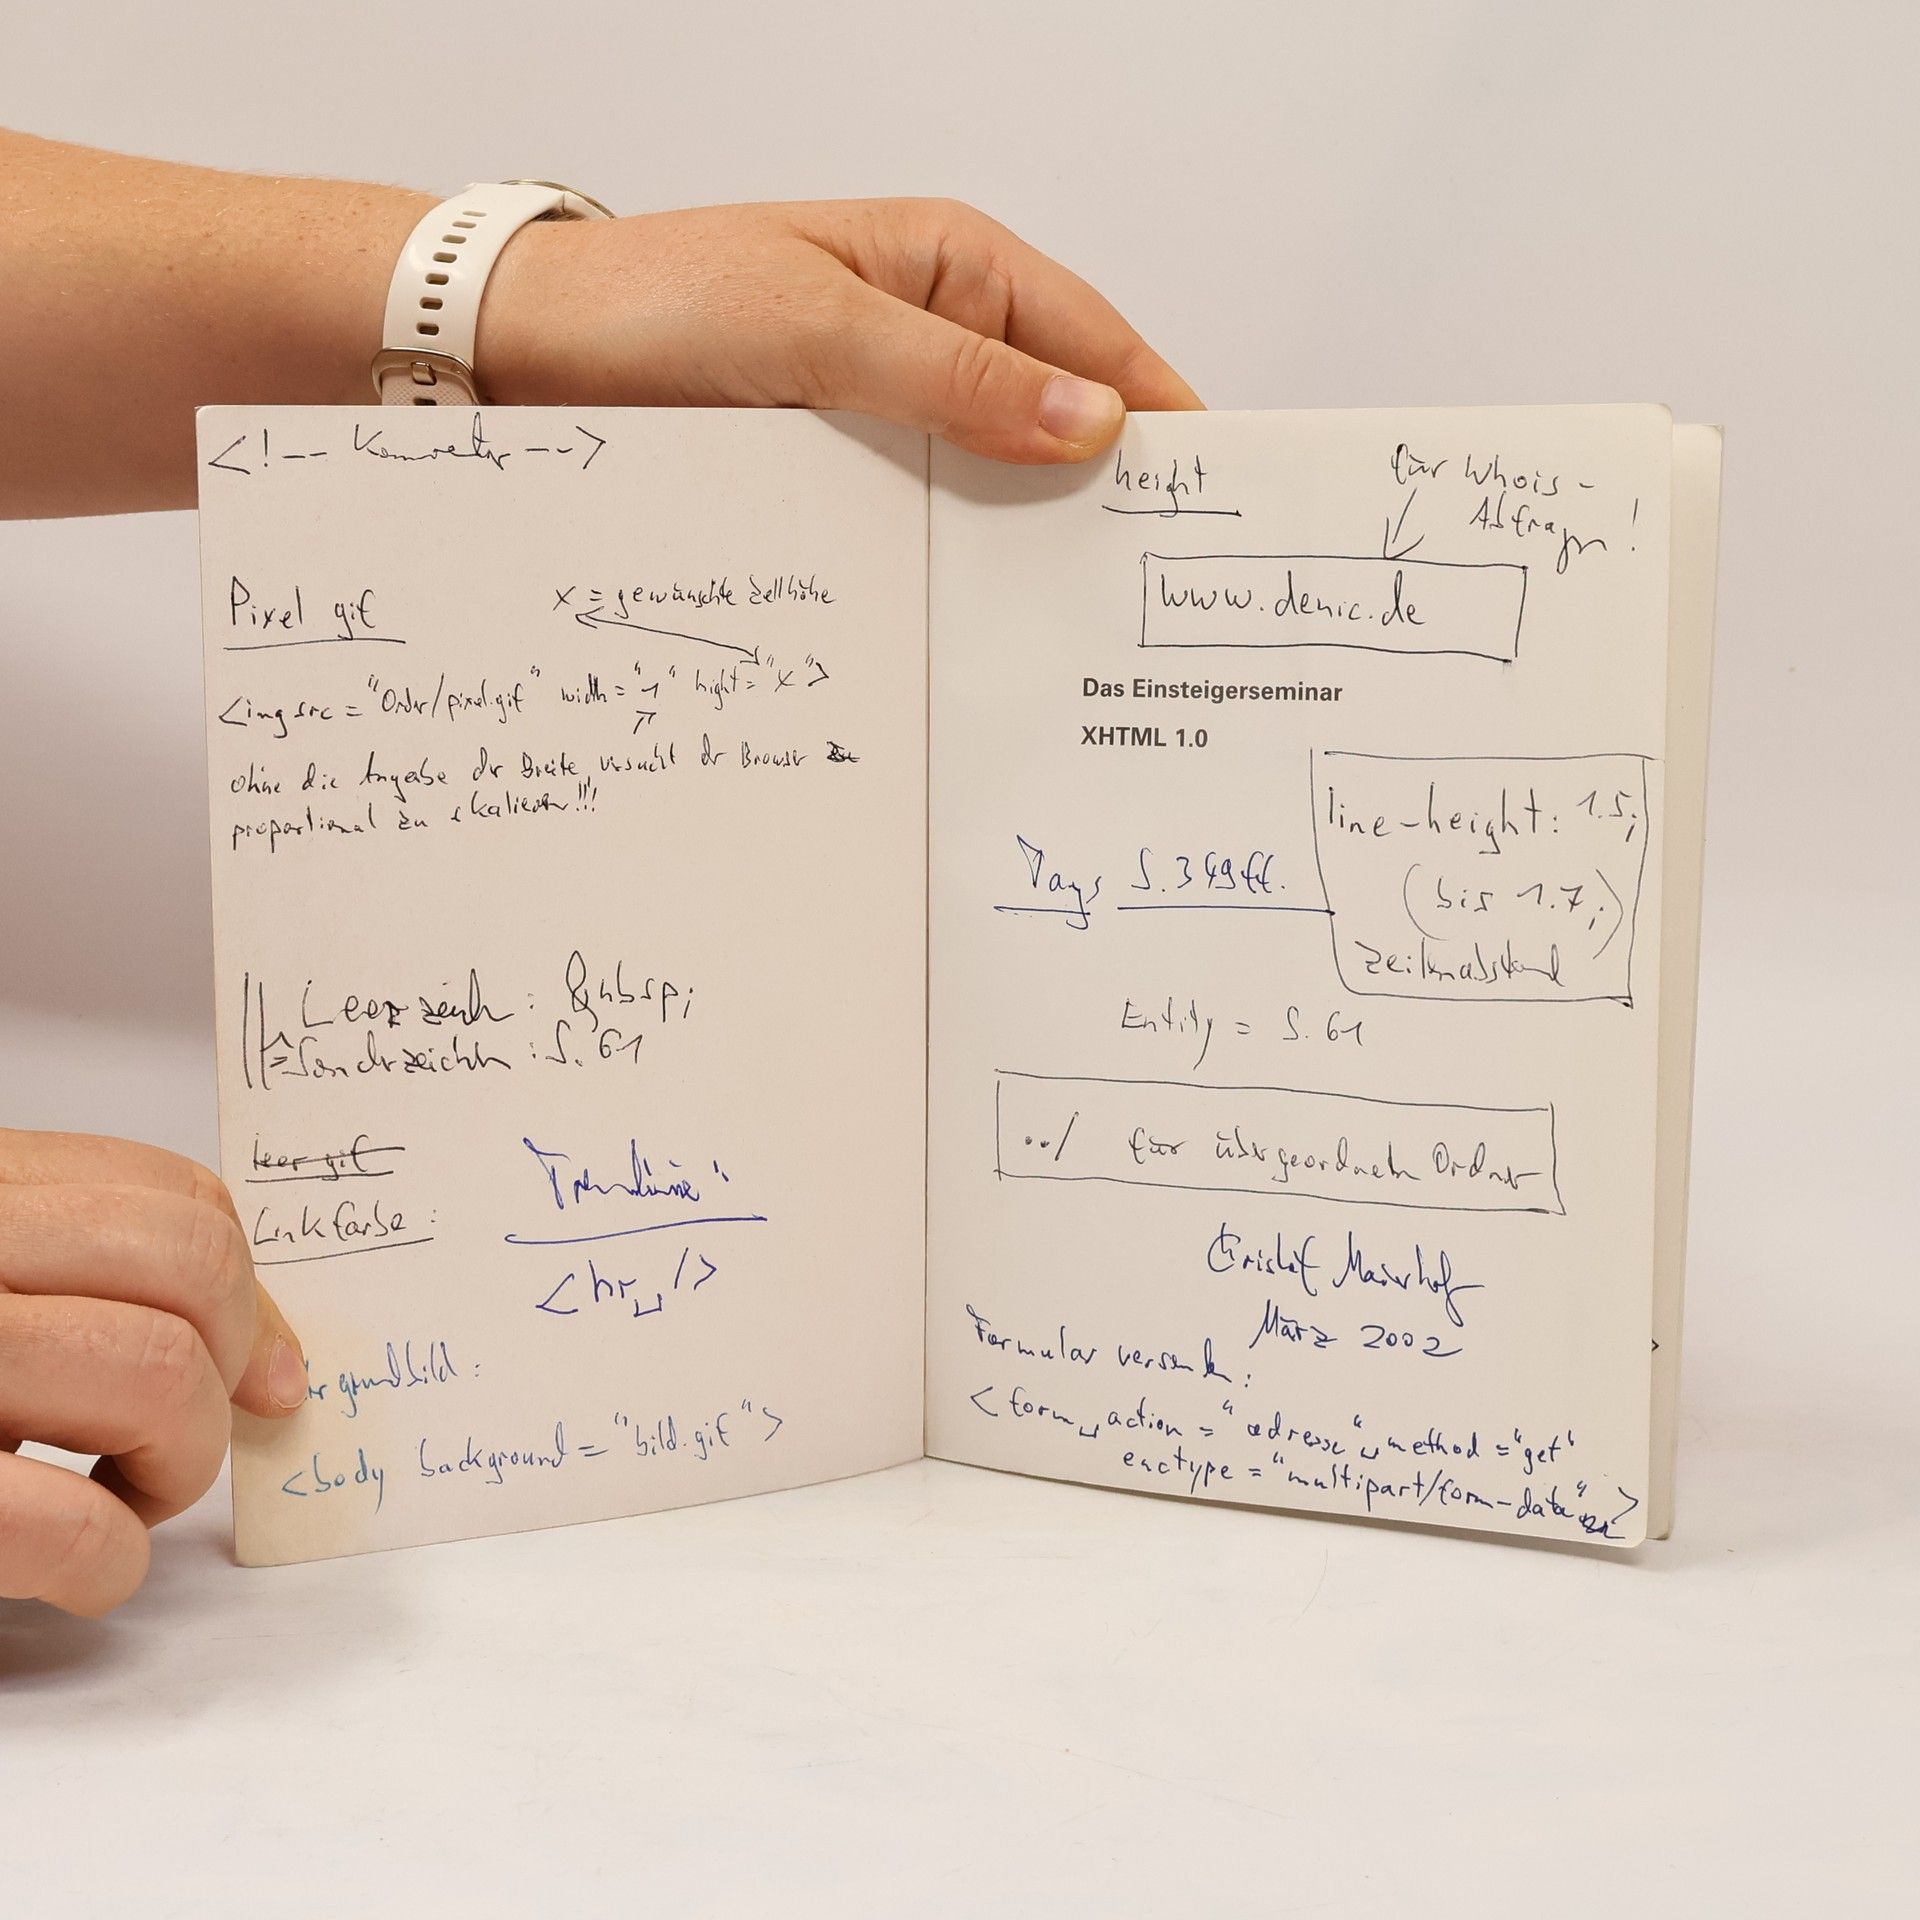 <!-- Kommentar -->
Pixel gif
x = gewünschte Zellhöhe
<img src = "Ordner/pixel.gif" width = "1" hight = "x">
ohne die Angabe der Breite versucht der Browser
proportional zu skalieren!!!
Leerzeich : &nbsp;
Sonderzeichen : S. 61
leer gif
Linkfarbe :
Trennlinie:
<hr␣/>
grundbild :
<body background = "bild.gif">
height
für Whois-
Abfragen!
www.denic.de
Das Einsteigerseminar
XHTML 1.0
line-height: 1.5;
(bis 1.7;)
Zeilenabstand
Tags S. 349 ff.
Entity = S. 61
../ für übergeordneten Ordner
Cristof Maierhofer
März 2002
Formular versenden :
<form␣action = "adresse"␣method = "get"
enctype = "multipart/form-data">